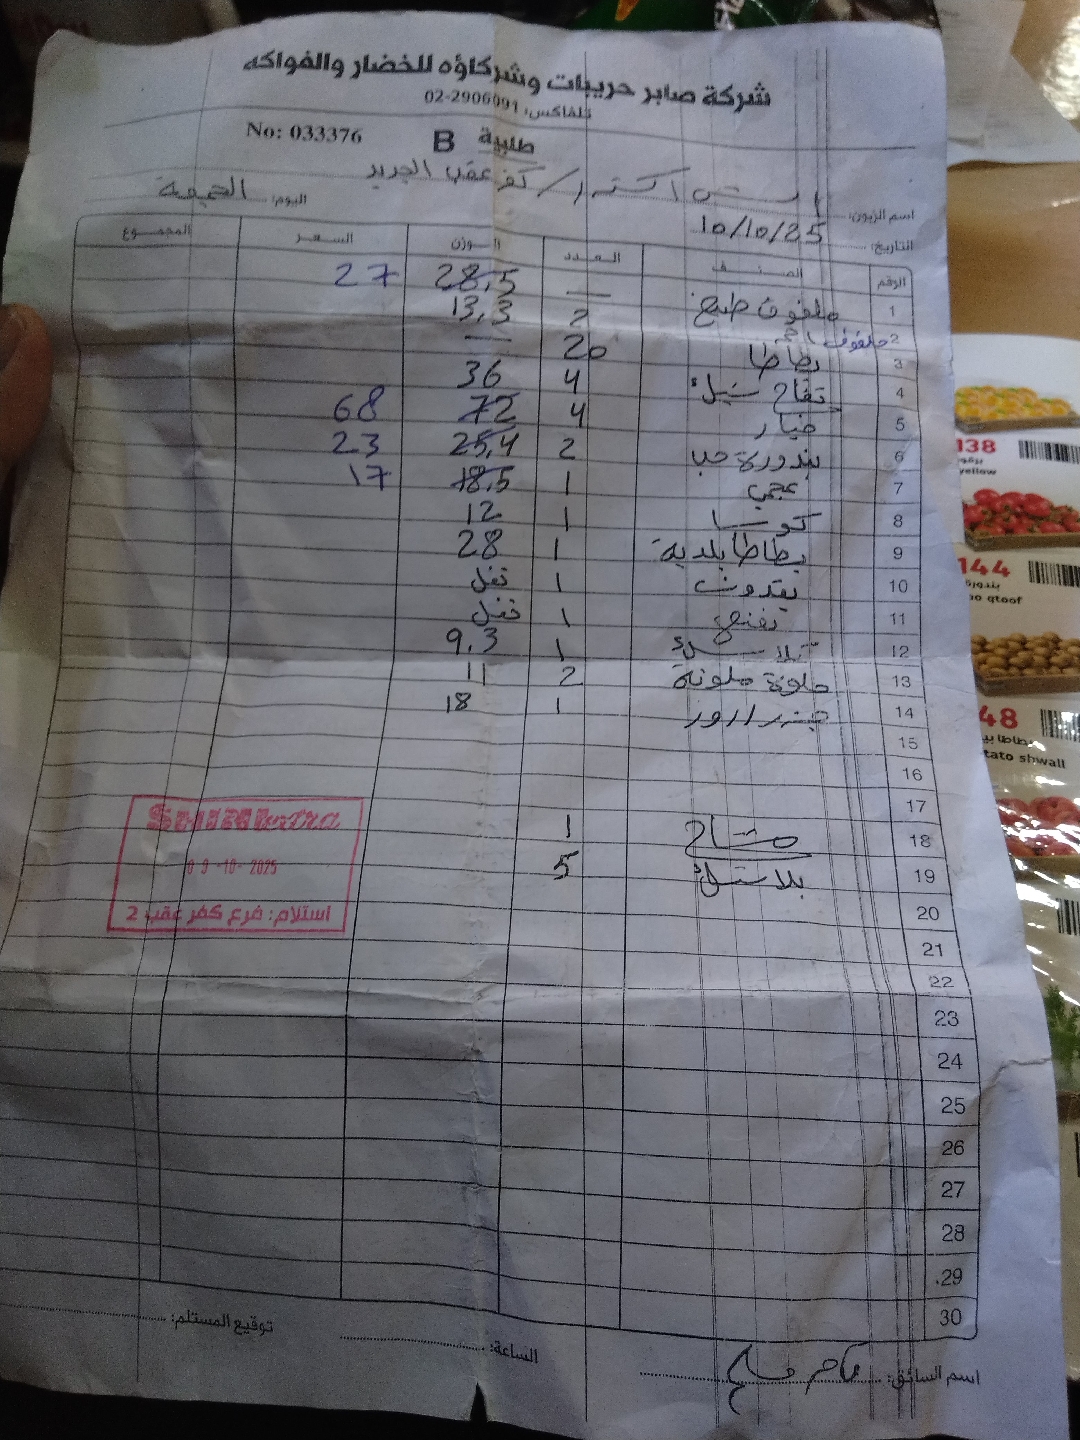 شركة صابر حريبات وشركاؤه للخضار والفواكه
تلفاكس: 02-2906091
طلبية B No: 033376
اسم الزبون: اكسترا / كفر عقب الجديد
التاريخ: 10/10/25 اليوم: الجمعة
الرقم الصنف العدد الوزن السعر المجموع
1 ملفوف طبخ — 28,5 27
2 ملفوف احمر 2 13,3
3 بطاطا 20 —
4 تفاح 4 36
5 خيار 4 72 68
6 بندورة حب 2 25,4 23
7 عجمي 1 18,5 17
8 كوسا 1 12
9 بطاطا بلدية 1 28
10 بقدونس 1
11 1
12 1 9,3
13 حلوة ملونة 2 11
14 جزر ارور 1 18
15
16
17
18 مشتاح 1
19 بلاستيك 5
20
21
22
23
24
25
26
27
28
29
30
SHINI extra
09-10-2025
استلام: فرع كفر عقب 2
توقيع المستلم:
الساعة:
اسم السائق:
138
برقوق
yellow
144
بندورة
no qtoof
48
بطاطا
tato shwall